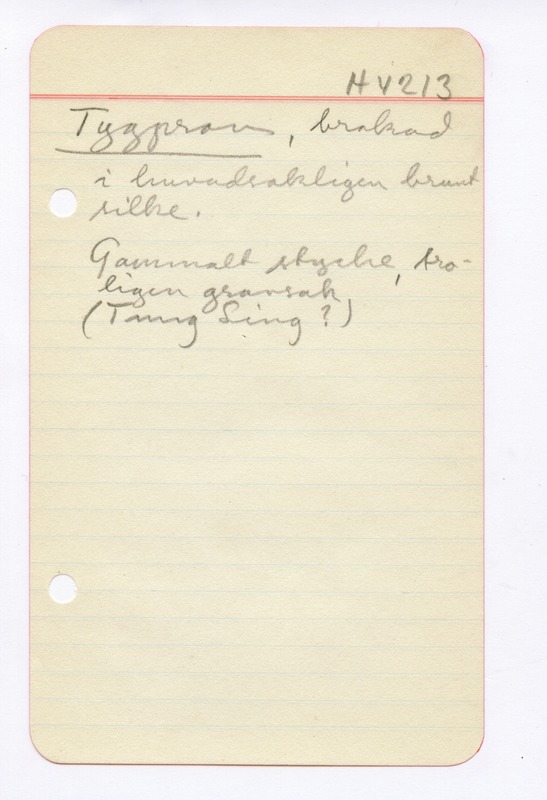 HV213
Tygprov, brokad
i huvudsakligen brunt
silke.
Gammalt stycke, tro-
ligen gravsak
(Tung Sing?)